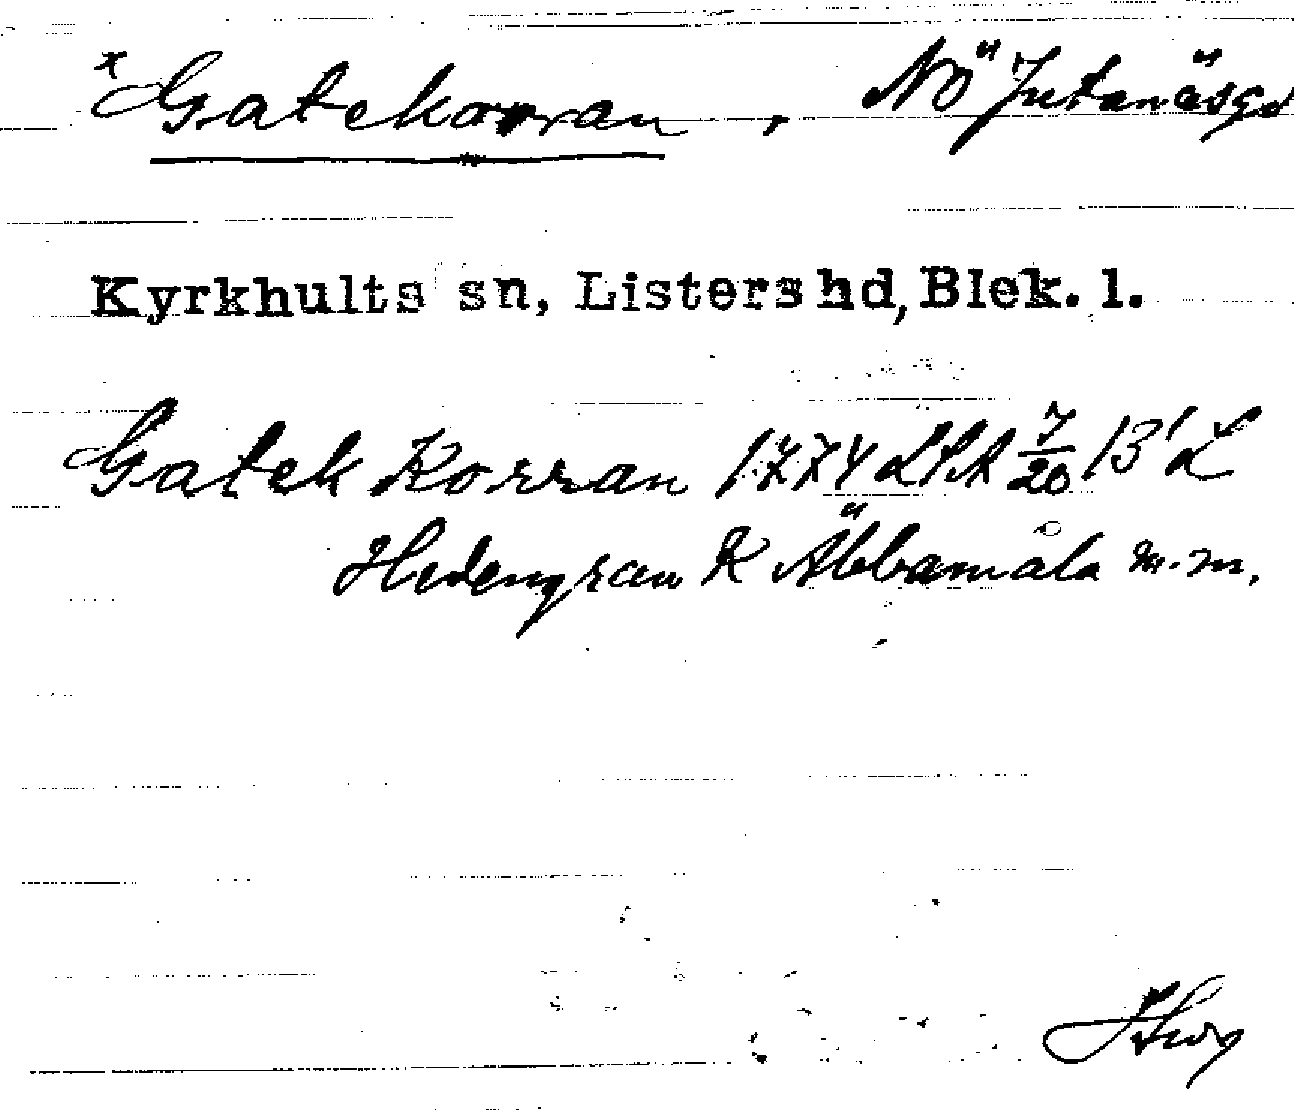 * Gatekorran, NÖ Jutanäsgd
Kyrkhults sn, Listers hd, Blek. l.
Gatek Korran 1774 LSA 7/20 13' L
Hedengran K Äbbamåla m.m.